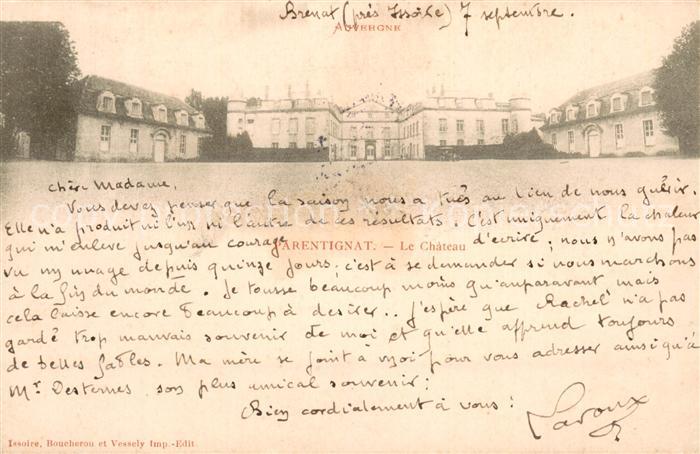 Brenat (près Issoire) 7 septembre.
AUVERGNE
Chère Madame,
Vous devez penser que la saison nous a tués au lieu de nous guérir.
Elle n'a produit ni l'un ni l'autre de ces résultats. C'est uniquement la chaleur
qui m'enlève jusqu'au courage d'écrire; nous n'avons pas
PARENTIGNAT. — Le Château
vu un nuage depuis quinze jours; c'est à se demander si nous marchons
à la fin du monde. Je tousse beaucoup moins qu'auparavant mais
cela laisse encore beaucoup à desirer.. J'espère que Rachel n'a pas
gardé trop mauvais souvenir de moi et qu'elle apprend toujours
de belles fables. Ma mère se joint à moi pour vous adresser ainsi qu'à
Mr. Desternes son plus amical souvenir;
Bien cordialement à vous:
Issoire, Boucherou et Vessely Imp.-Edit.